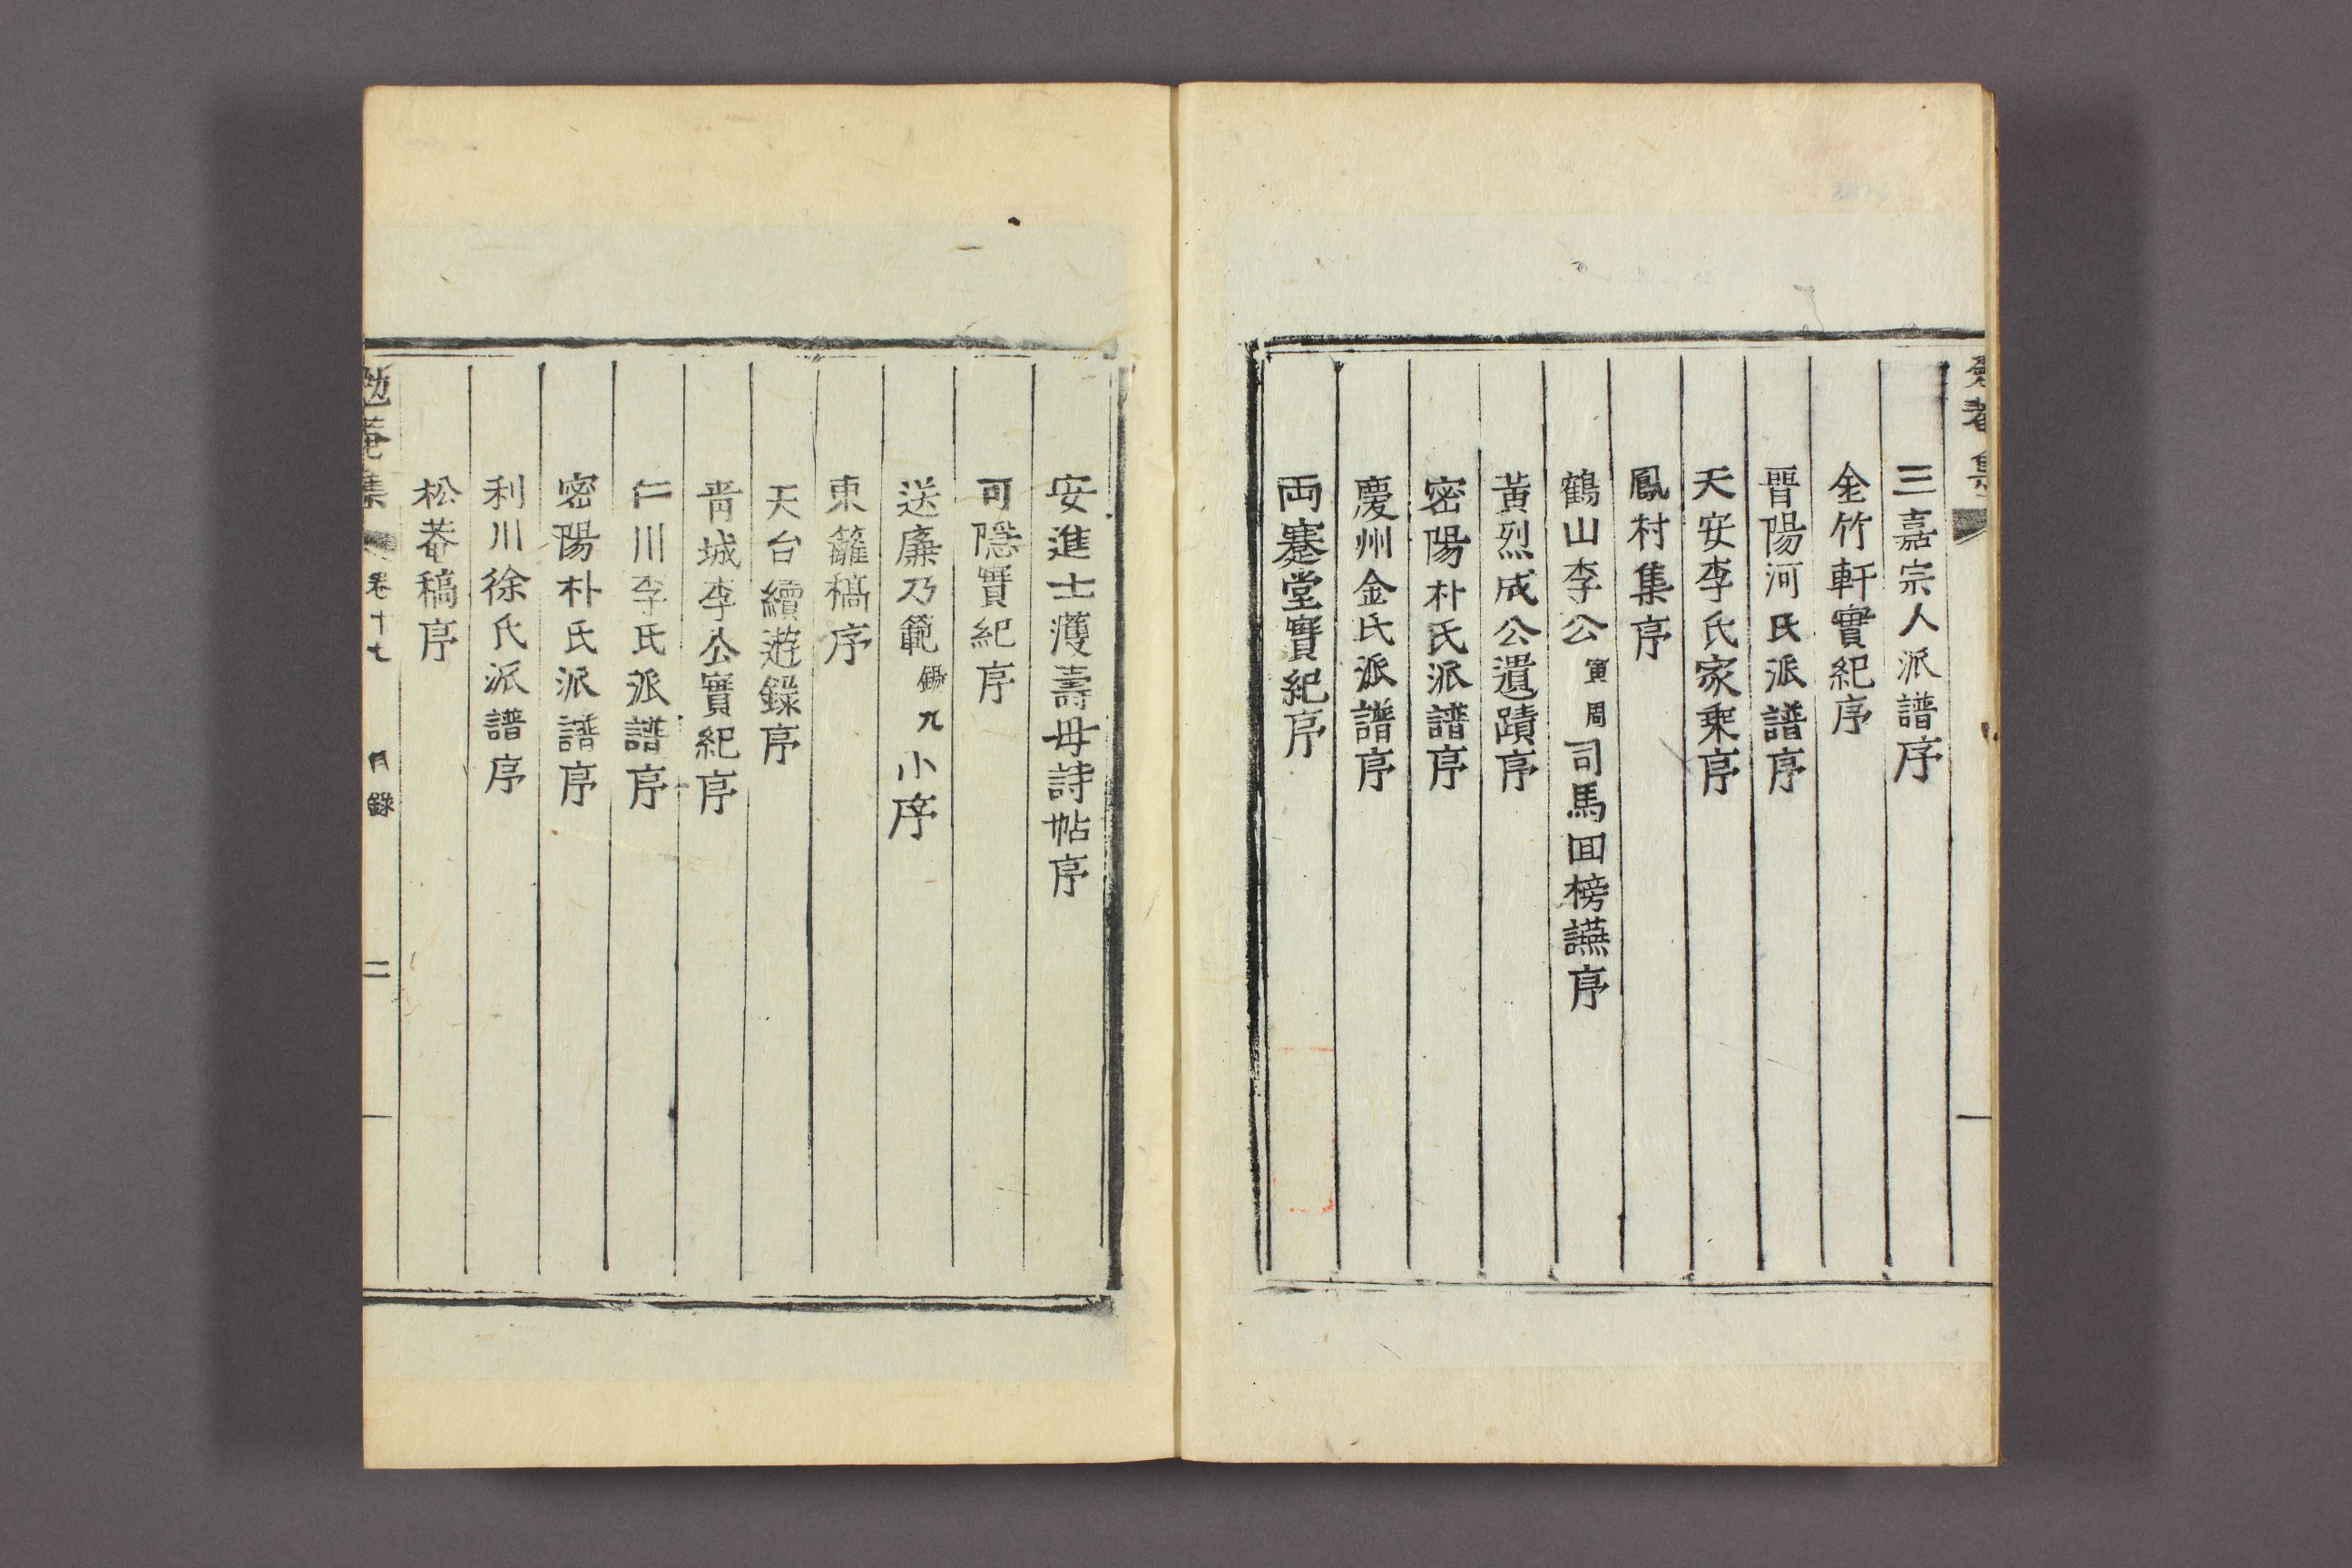 三嘉宗人派譜序
金竹軒實紀序
晉陽河氏派譜序
天安李氏家乘序
鳳村集序
鶴山李公寅周司馬回榜讌序
黃烈成公遺蹟序
密陽朴氏派譜序
慶州金氏派譜序
両蹇堂實紀序
安進士濩壽母詩帖序
可隱實紀序
送廉乃範錫九小序
東籬稿序
天台續遊錄序
靑城李公實紀序
仁川李氏派譜序
密陽朴氏派譜序
利川徐氏派譜序
松菴稿序
勉菴集 卷十七 目錄 二